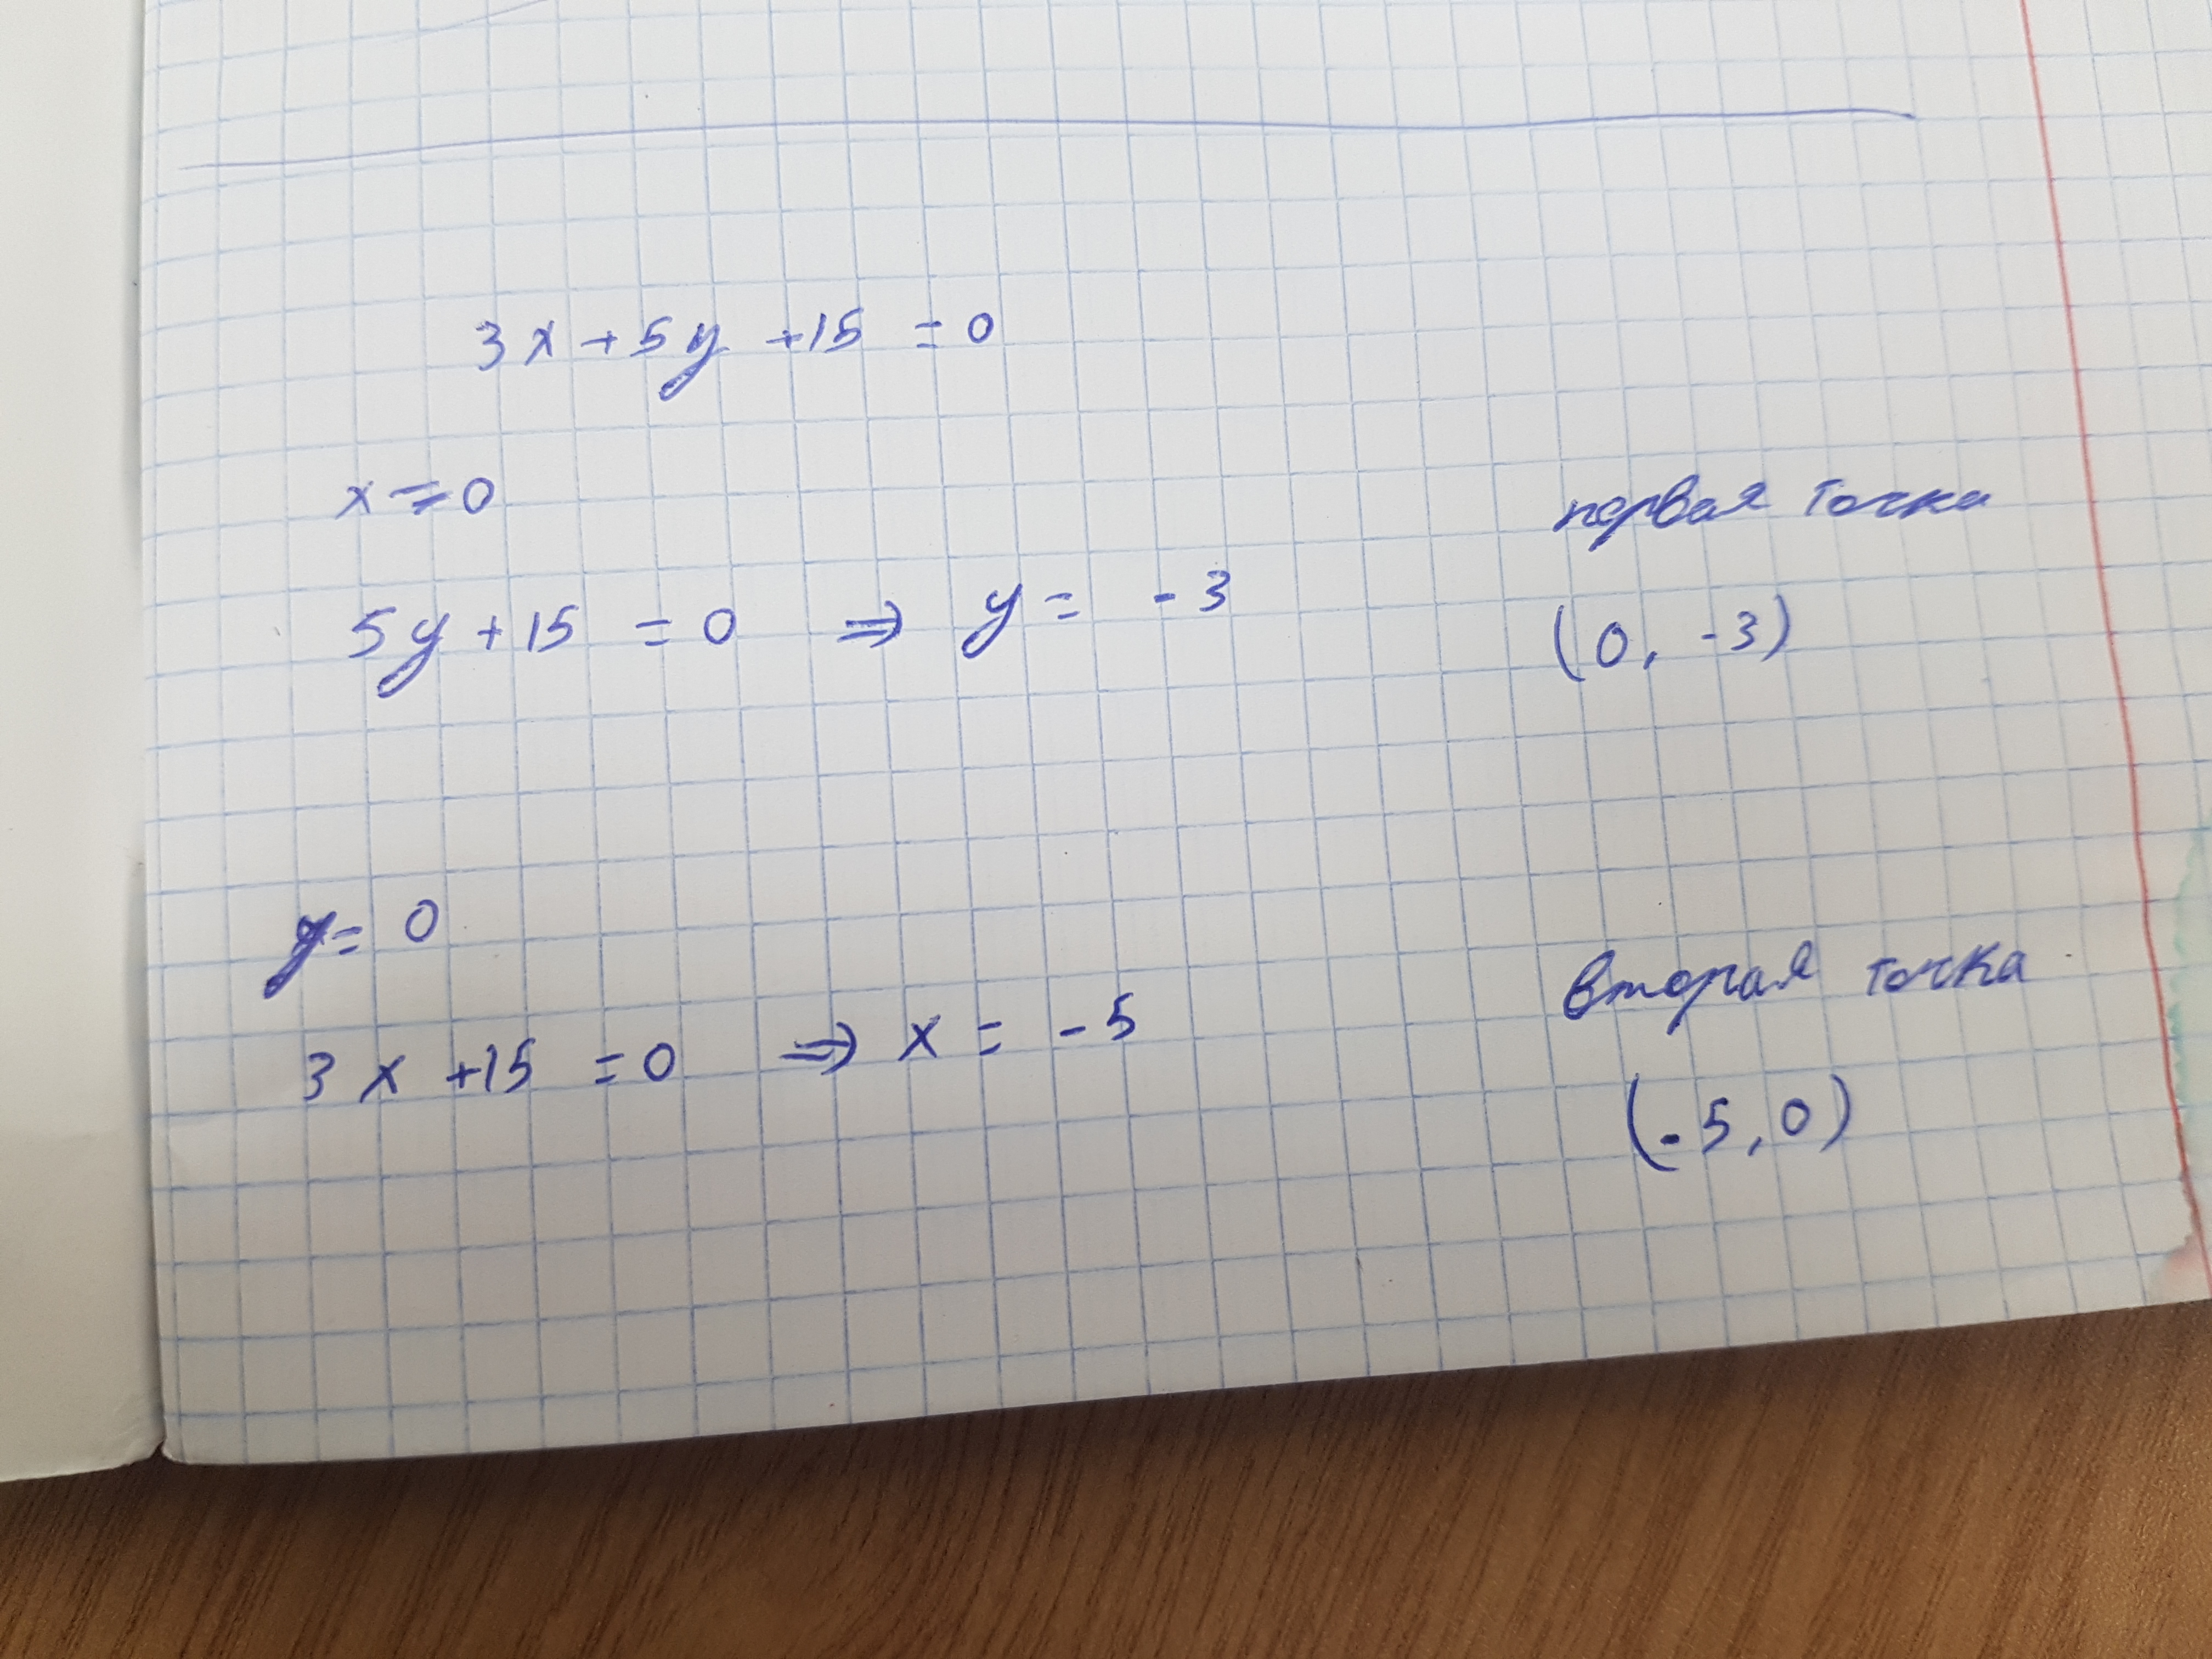 3x + 5y + 15 = 0
x = 0
первая точка
5y + 15 = 0 ⇒ y = -3
(0, -3)
y = 0
вторая точка
3x + 15 = 0 ⇒ x = -5
(-5, 0)